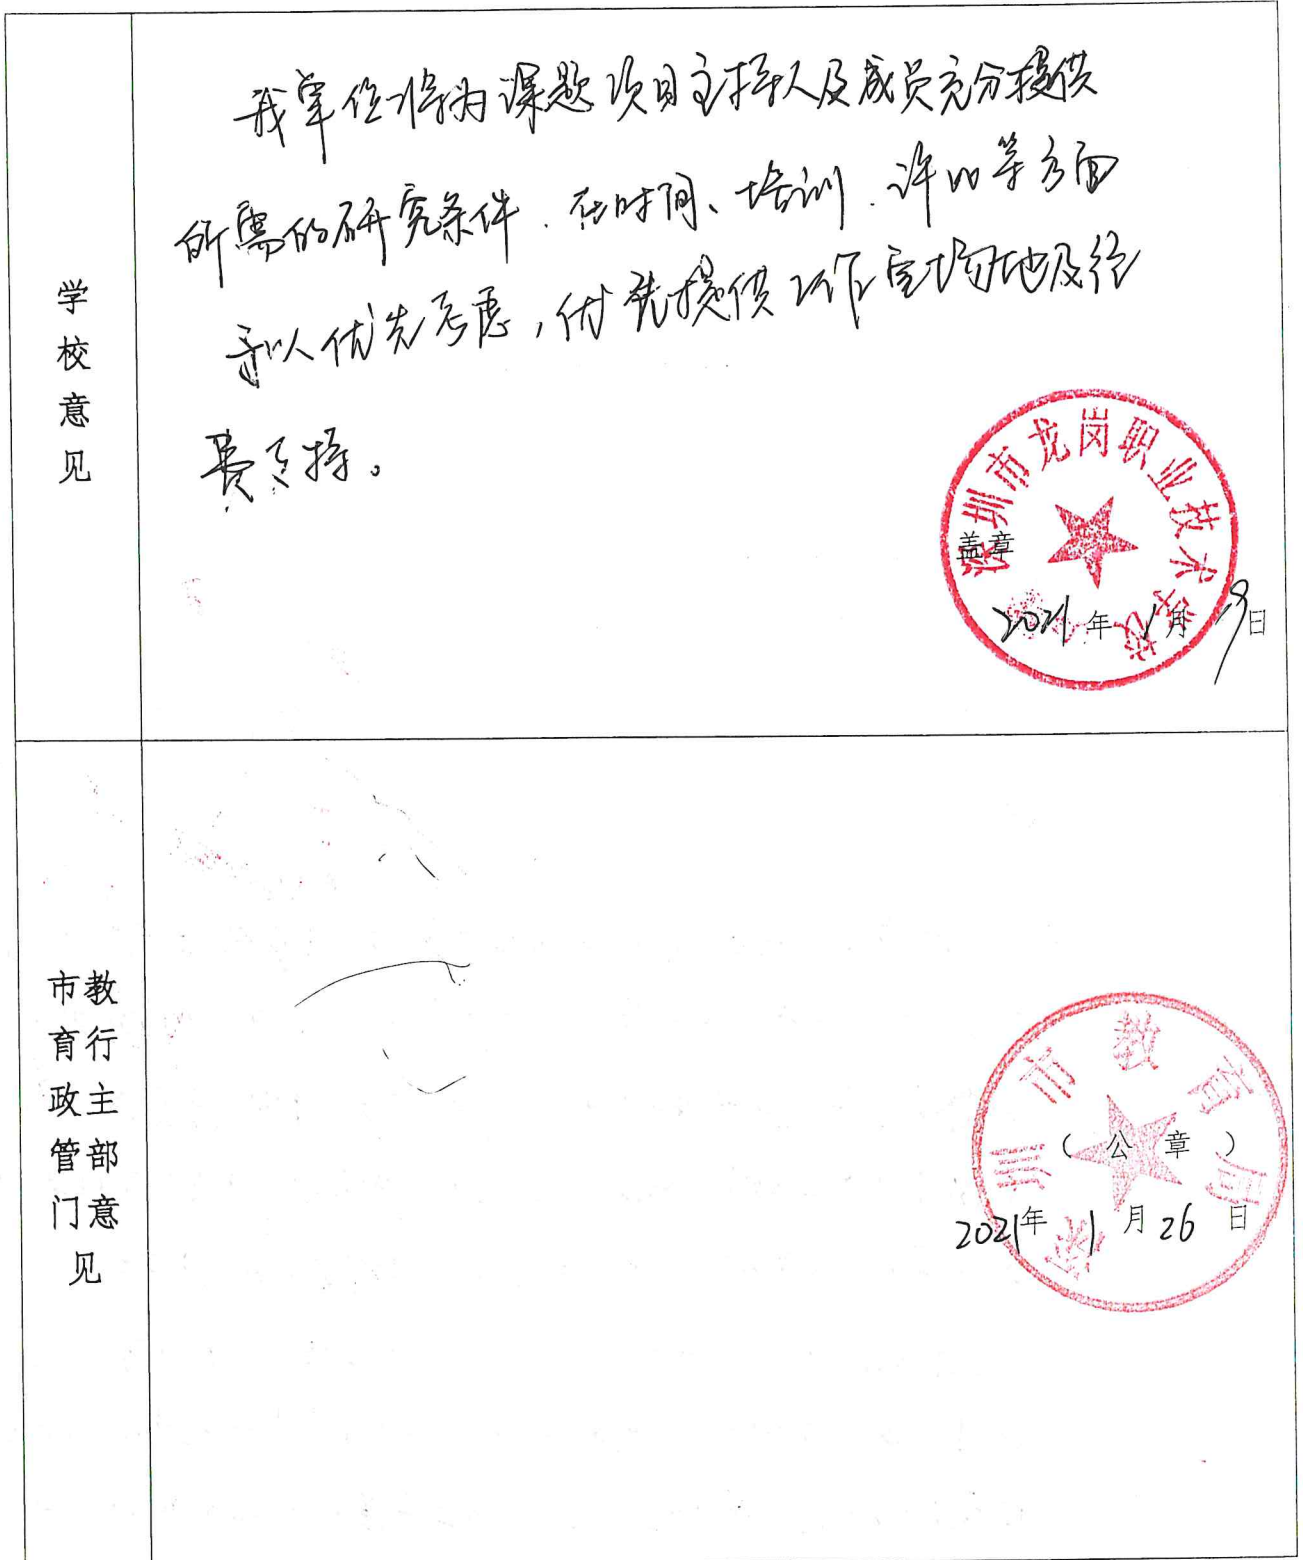 学校意见
我单位将为课题项目主持人及成员充分提供
所需的研究条件.在时间、培训.评比等方面
予以优先考虑,优先提供工作室场地及经
费支持。
深圳市龙岗职业技术学校
盖章
2021年1月19日
市教育行政主管部门意见
深圳市教育局
(公章)
2021年1月26日